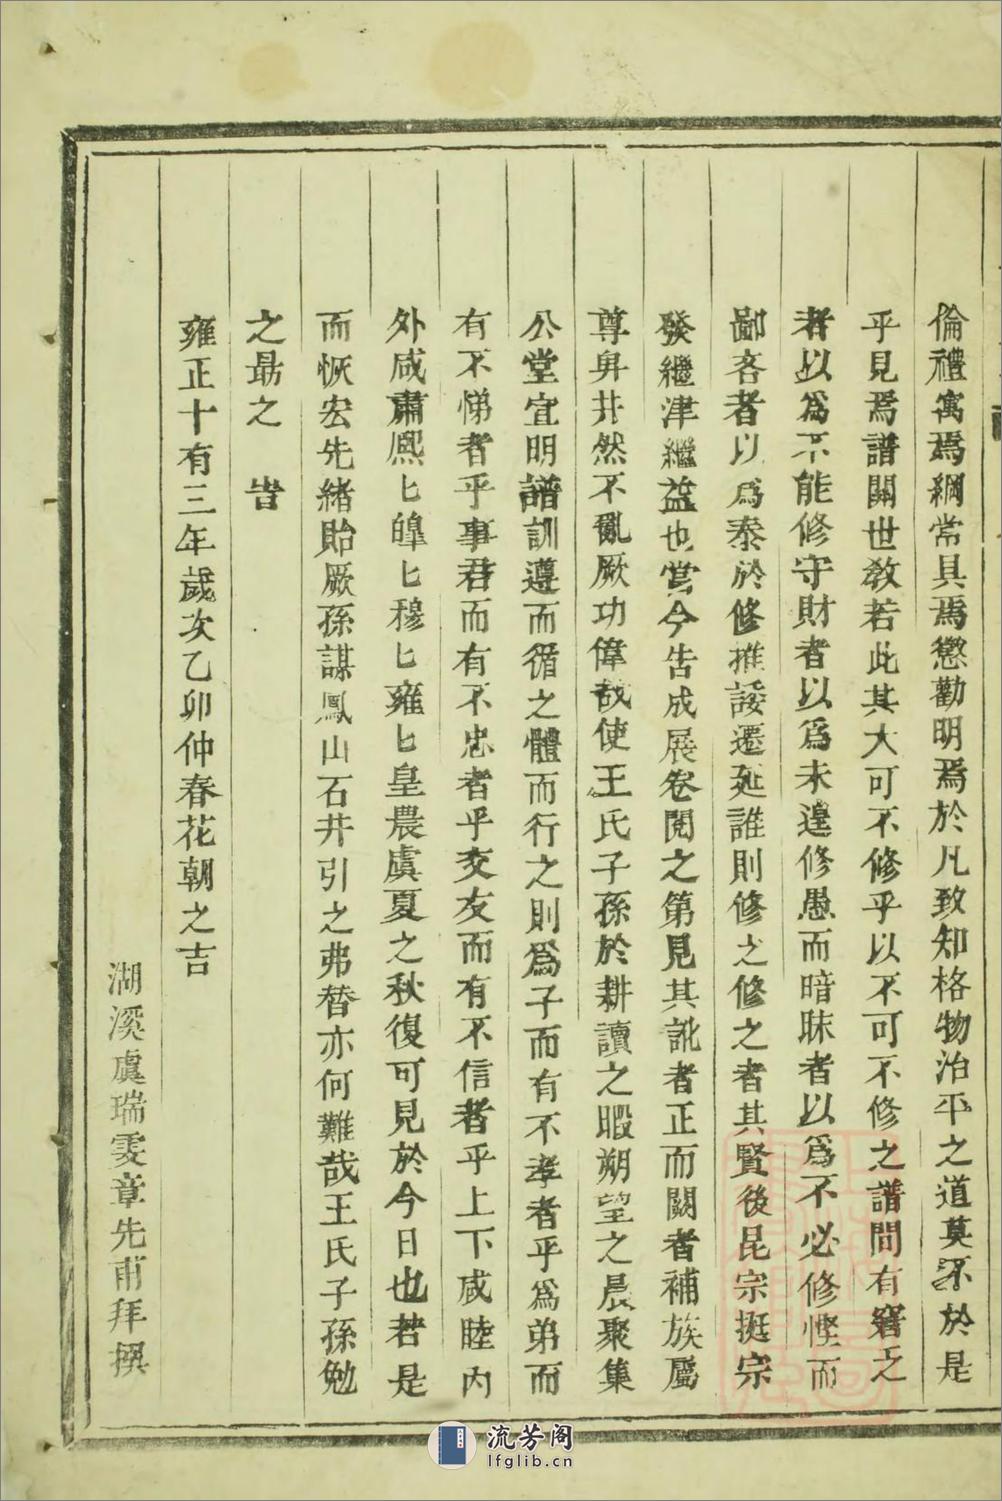 倫禮寓焉綱常具焉懲勸明焉於凡致知格物治平之道莫不於是
乎見焉譜關世教若此其大可不修乎以不可不修之譜間有窘乏
者以爲不能修守財者以爲未遑修愚而暗昧者以爲不必修慳而
鄙吝者以爲泰於修推諉遷延誰則修之修之者其賢後昆宗挺宗
發繼津繼益也嘗今告成展卷閱之第見其訛者正而闕者補族屬
尊舁井然不亂厥功偉哉使王氏子孫於耕讀之暇朔望之晨聚集
公堂宜明譜訓遵而循之體而行之則爲子而有不孝者乎爲弟而
有不悌者乎事君而有不忠者乎交友而有不信者乎上下咸睦內
外咸肅熈匕皥匕穆匕雍匕皇農虞夏之秋復可見於今日也若是
而恢宏先緒貽厥孫謀鳳山石井引之弗替亦何難哉王氏子孫勉
之勗之 旹
雍正十有三年歲次乙卯仲春花朝之吉
湖溪虞瑞雯章先甫拜撰
流芳阁
lfglib.cn